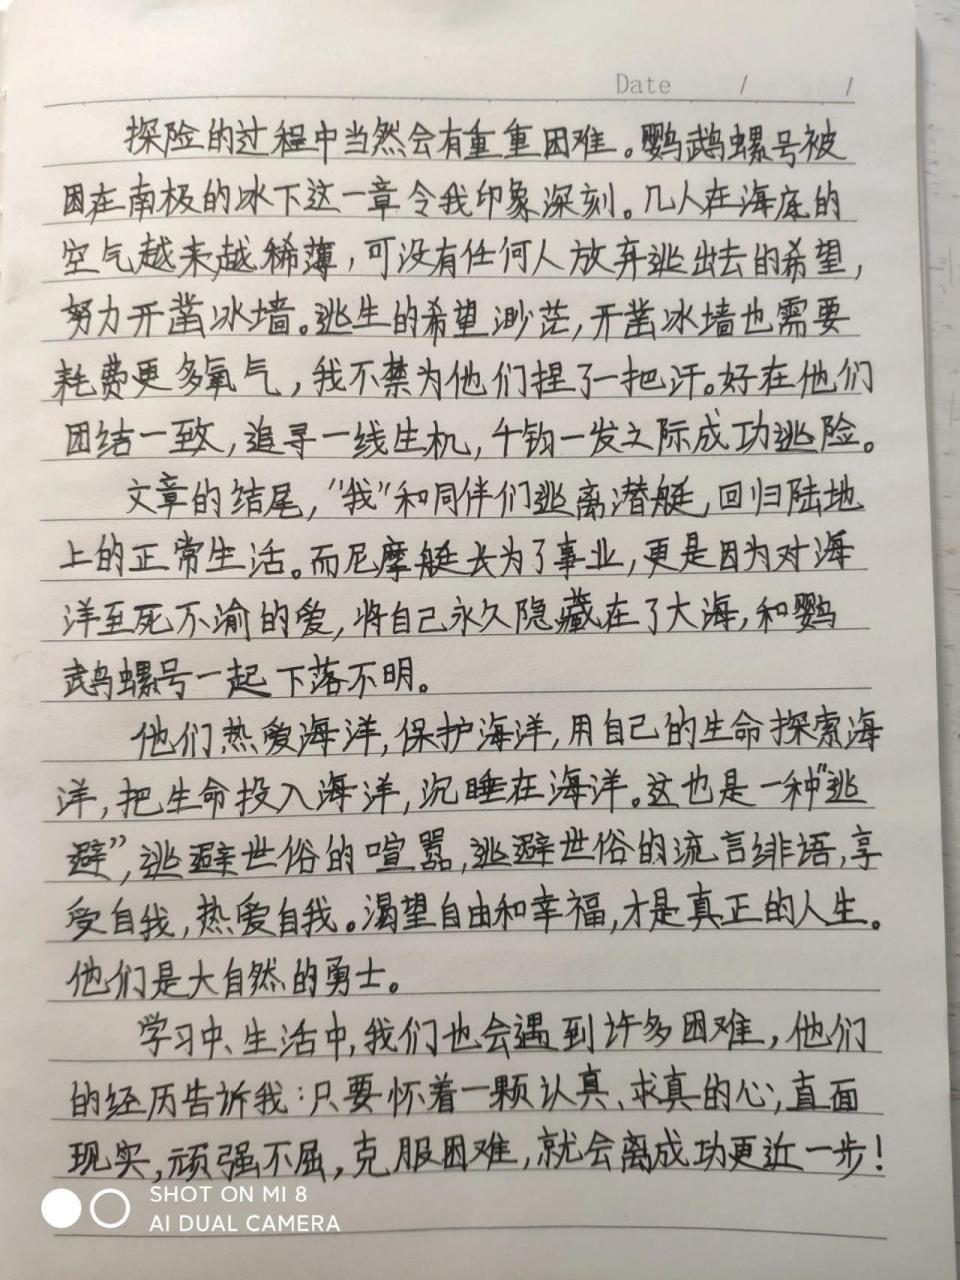 Date / /
探险的过程中当然会有重重困难。鹦鹉螺号被
困在南极的冰下这一章令我印象深刻。几人在海底的
空气越来越稀薄，可没有任何人放弃逃出去的希望，
努力开凿冰墙。逃生的希望渺茫，开凿冰墙也需要
耗费更多氧气，我不禁为他们捏了一把汗。好在他们
团结一致，追寻一线生机，千钧一发之际成功逃险。
文章的结尾，“我”和同伴们逃离潜艇，回归陆地
上的正常生活。而尼摩艇长为了事业，更是因为对海
洋至死不渝的爱，将自己永久隐藏在了大海，和鹦
鹉螺号一起下落不明。
他们热爱海洋，保护海洋，用自己的生命探索海
洋，把生命投入海洋，沉睡在海洋。这也是一种“逃
避”，逃避世俗的喧嚣，逃避世俗的流言绯语，享
受自我，热爱自我。渴望自由和幸福，才是真正的人生。
他们是大自然的勇士。
学习中、生活中，我们也会遇到许多困难，他们
的经历告诉我：只要怀着一颗认真、求真的心，直面
现实，顽强不屈，克服困难，就会离成功更近一步！
SHOT ON MI 8
AI DUAL CAMERA